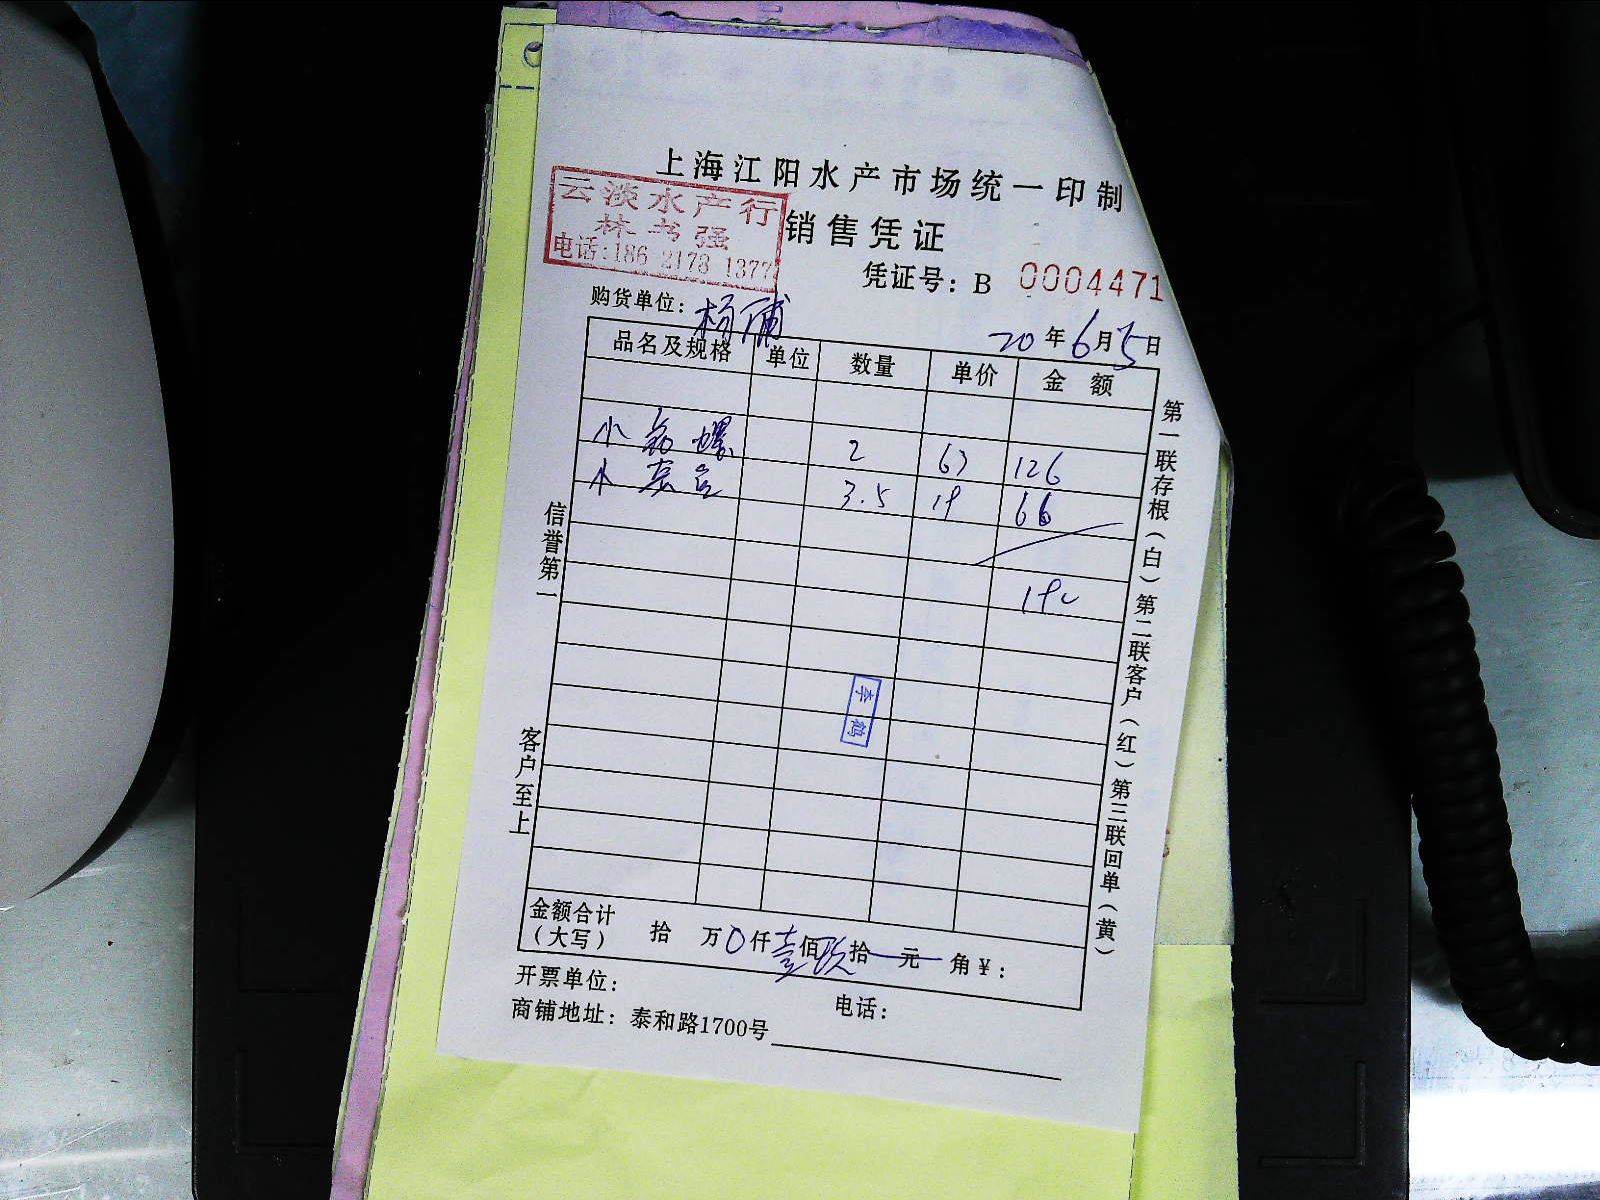 上海江阳水产市场统一印制
云淡水产行
林书强
电话:186 2178 1377
销售凭证
凭证号: B 0004471
购货单位: 杨浦
20 年 6 月 5 日
品名及规格 单位 数量 单价 金 额
小 螺 2 63 126
小 3.5 19 66
192
李鹤
信誉第一
客户至上
第一联存根(白)第二联客户(红)第三联回单(黄)
金额合计(大写) 拾 万 0 仟 壹 佰 玖 拾 元 角 ¥:
开票单位: 电话:
商铺地址: 泰和路1700号